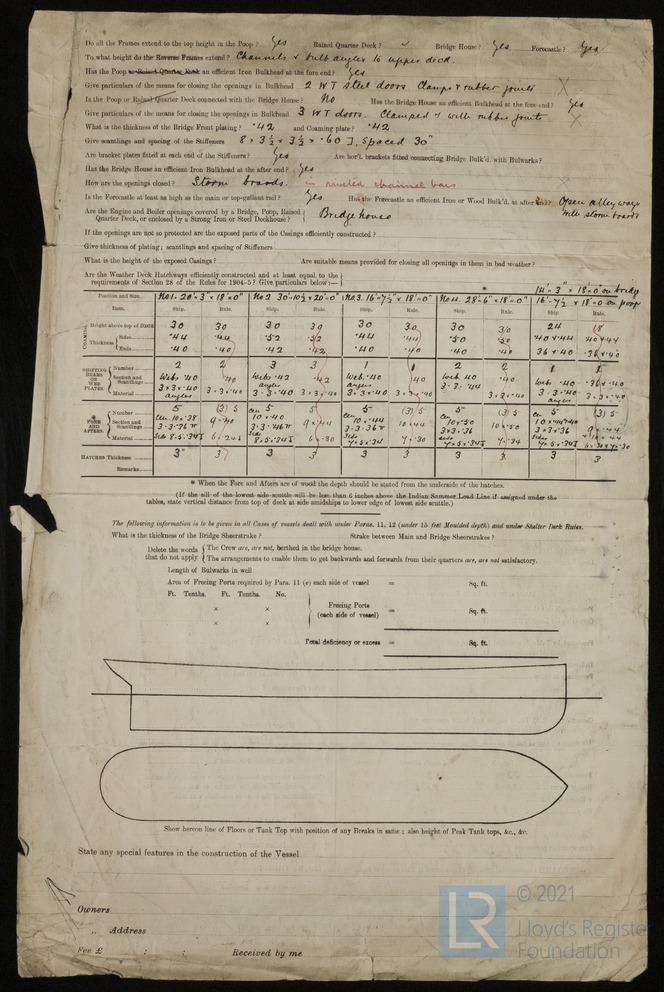 Do all the Frames extend to the top height in the Poop? Yes Raised Quarter Deck? Bridge House? Yes Forecastle? Yes
To what height do the Reverse Frames extend? Channels & bulb angles to upper deck.
Has the Poop or Raised Quarter Deck an efficient Iron Bulkhead at the fore end? Yes
Give particulars of the means for closing the openings in Bulkhead 2 WT steel doors Clamps & rubber joints
Is the Poop or Raised Quarter Deck connected with the Bridge House? No Has the Bridge House an efficient Bulkhead at the fore end? Yes
Give particulars of the means for closing the openings in Bulkhead 3 WT doors. Clamped & with rubber joints
What is the thickness of the Bridge Front plating? .42 and Coaming plate? .42
Give scantlings and spacing of the Stiffeners 8 x 3½ x 3½ x .60 ], Spaced 30"
Are bracket plates fitted at each end of the Stiffeners? Yes Are hor'l. brackets fitted connecting Bridge Bulk'd. with Bulwarks?
Has the Bridge House an efficient Iron Bulkhead at the after end? Yes
How are the openings closed? Storm boards. in riveted channel bars
Is the Forecastle at least as high as the main or top-gallant rail? Yes Has the Forecastle an efficient Iron or Wood Bulk'd. at after end? Open alleyways
with storm boards
Are the Engine and Boiler openings covered by a Bridge, Poop, Raised Quarter Deck, or enclosed by a Strong Iron or Steel Deckhouse? Bridge house
If the openings are not so protected are the exposed parts of the Casings efficiently constructed?
Give thickness of plating; scantlings and spacing of Stiffeners
What is the height of the exposed Casings? Are suitable means provided for closing all openings in them in bad weather?
Are the Weather Deck Hatchways efficiently constructed and at least equal to the
requirements of Section 28 of the Rules for 1904-5? Give particulars below:—
* 14'-3" x 18'-0" on bridge
Position and Size. No 1. 20'-3" x 18'-0" No 2 30'-10½ x 20'-0" No 3. 16'-7½" x 18'-0" No 4. 28'-6" x 18'-0" 16'-7½ x 18'-0 on poop
Item. Ship. Rule. Ship. Rule. Ship. Rule. Ship. Rule. Ship. Rule.
COAMING Height above top of DECK 30 30 30 30 30 30 30 30 24 18
Thickness Sides .44 .44 .52 .52 .44 .44 .50 .50 .40 & .44 .40 & .44
Ends .40 .40 .42 .42 .40 .40 .40 .40 36 & .40 .36 & .40
SHIFTING BEAMS OR WEB PLATES Number 2 2 3 3 1 1 2 2 1 1
Section and Scantlings Webs .40 .40 Webs .42 .42 Web .40 .40 Web .40 .40 Web .40 .36 & .40
Material 3 x 3 x .40 angles 3 x 3 x .40 angles 3 x 3 x .40 3 x 3 x .40 angles 3 x 3 x .40 3 x 3 x .40 3 x 3 x .44 3 x 3 x .40 3 x 3 x .40 angles 3 x 3 x .40
* FORE AND AFTERS. Number 5 (3) 5 5 5 5 (3) 5 5 5 5 (3) 5
Section and Scantlings
Material
HATCHES Thickness 3" 3 3 3 3 3 3 3 3 3
Remarks
* When the Fore and Afters are of wood the depth should be stated from the underside of the hatches.
(If the sill of the lowest side scuttle will be less than 6 inches above the Indian Summer Load Line if assigned under the
tables, state vertical distance from top of deck at side amidships to lower edge of lowest side scuttle.)
The following information is to be given in all Cases of vessels dealt with under Paras. 11, 12 (under 15 feet Moulded depth) and under Shelter Deck Rules.
What is the thickness of the Bridge Sheerstrake? Strake between Main and Bridge Sheerstrakes?
Delete the words The Crew are, are not, berthed in the bridge house.
that do not apply The arrangements to enable them to get backwards and forwards from their quarters are, are not satisfactory.
Length of Bulwarks in well
Area of Freeing Ports required by Para. 11 (e) each side of vessel = Sq. ft.
Ft. Tenths. Ft. Tenths. No.
x x Freeing Ports
(each side of vessel) = Sq. ft.
x x
Total deficiency or excess = Sq. ft.
Show hereon line of Floors or Tank Top with position of any Breaks in same; also height of Peak Tank tops, &c., &c.
State any special features in the construction of the Vessel
Owners
„ Address
Fee £ : : Received by me
LR © 2021
Lloyd's Register
Foundation